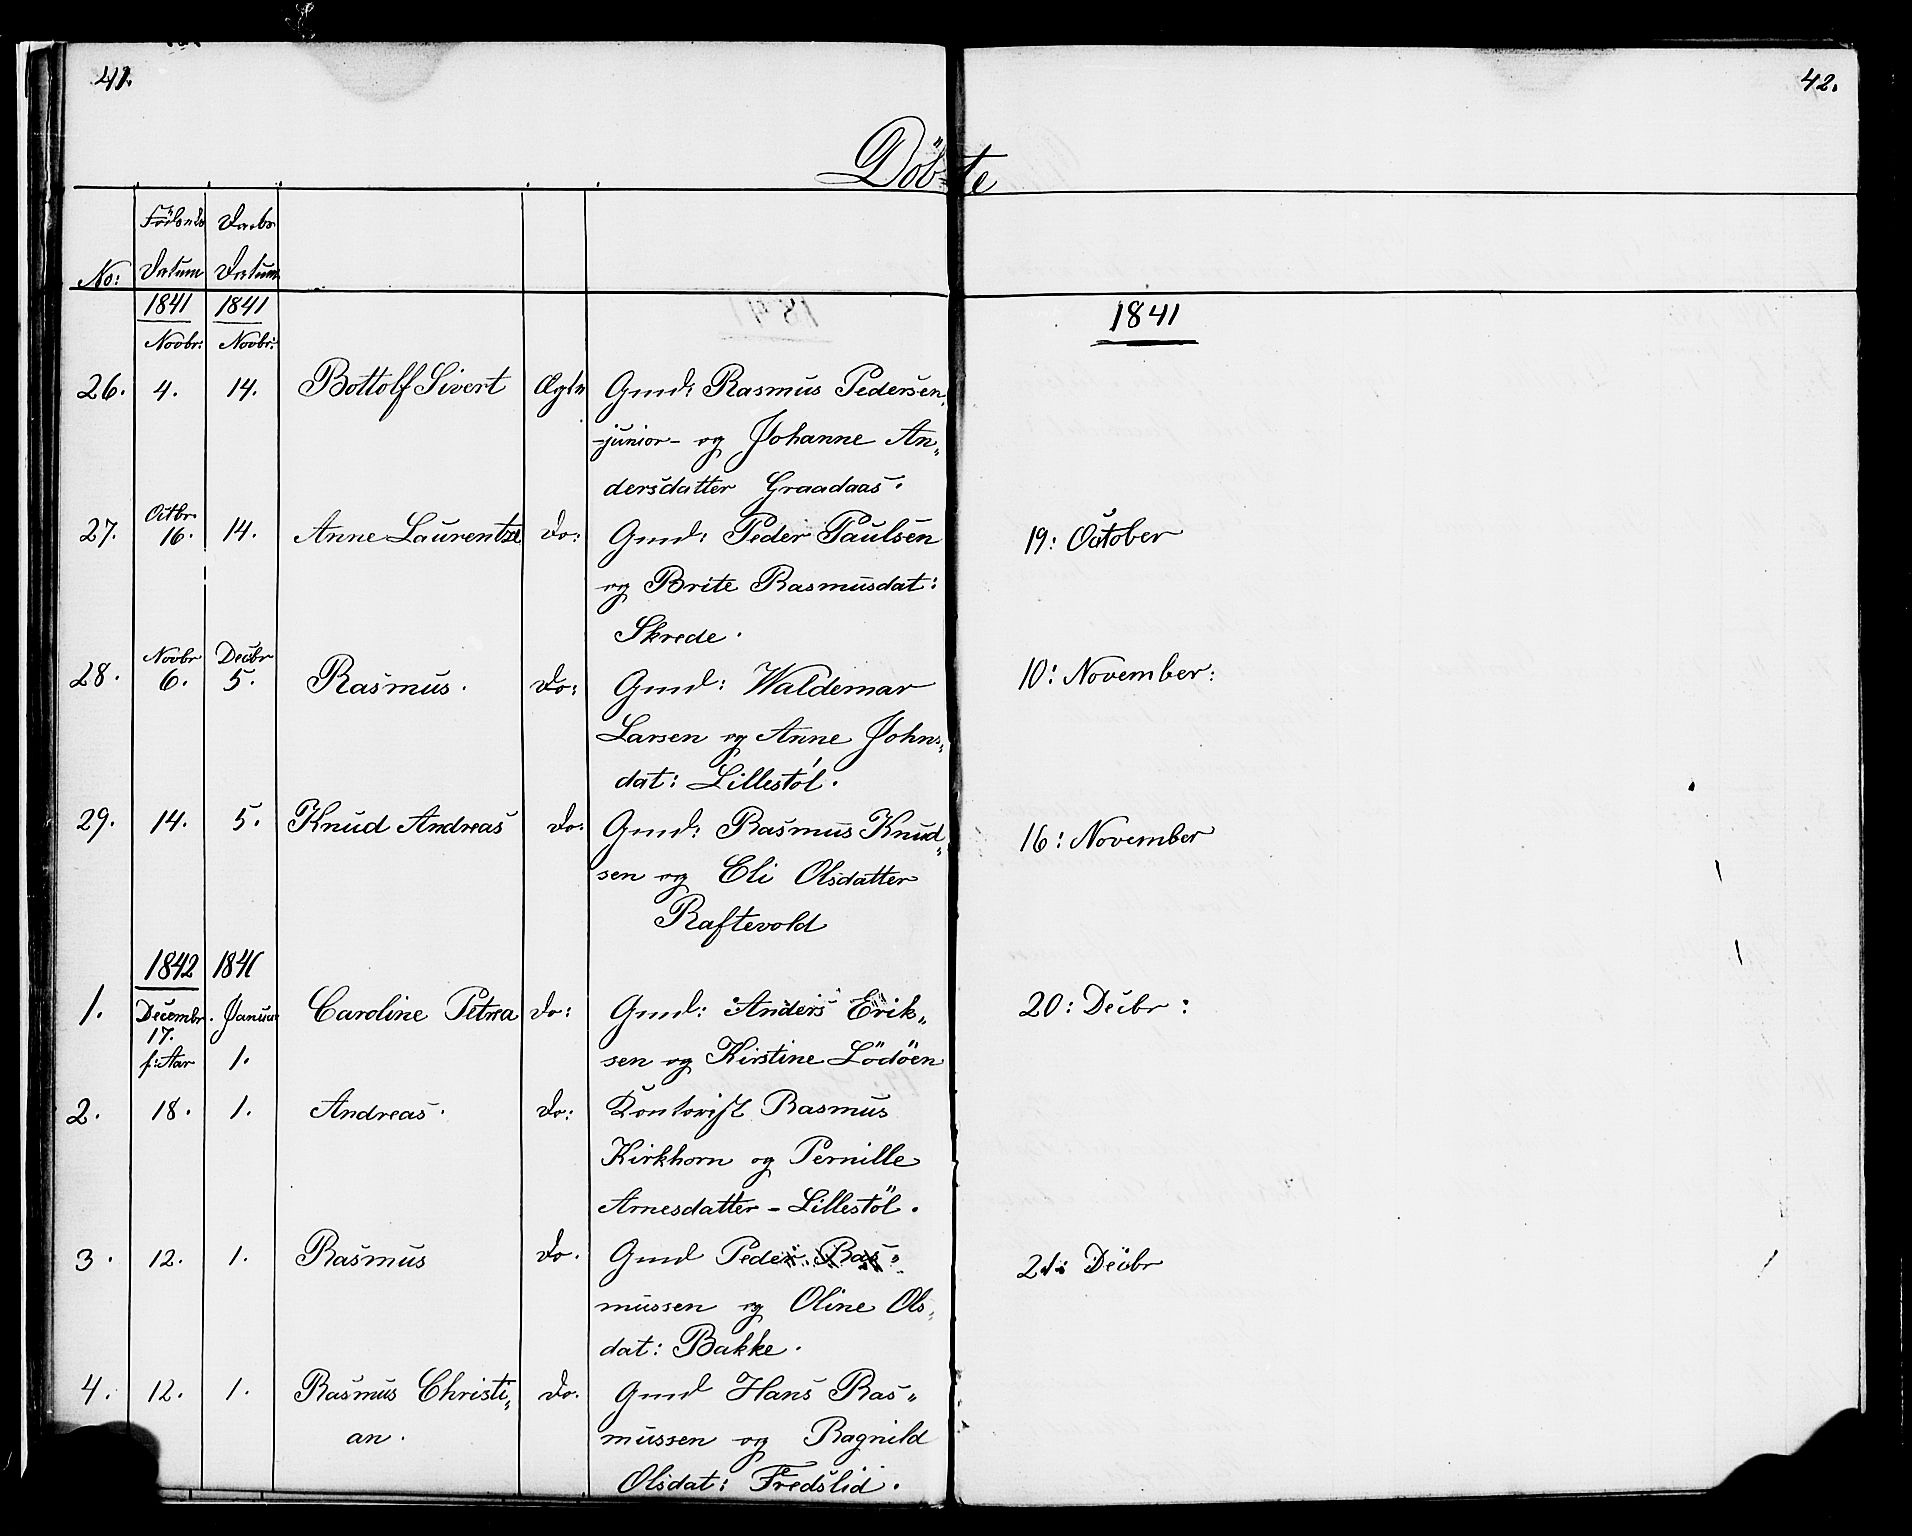 41.
42.
Döbte
Födsels Daabs
No: Datum Datum
1841 1841 1841
Novbr: Novbr:
26. 4. 14. Bottolf Sivert Ægte Gmd: Rasmus Pedersen
-junior- og Johanne An„
dersdatter Graadaas.
Octbr.
27. 16. 14. Anne Laurentze Do: Gmd: Peder Paulsen 19: October
og Brite Rasmusdat:
Skrede.
Novbr Decbr
28. 6. 5. Rasmus. Do: Gmd: Waldemar 10: November:
Larsen og Anne Johns„
dat: Lillestöl.
29. 14. 5. Knud Andreas Do: Gmd: Rasmus Knud„ 16: November
sen og Eli Olsdatter
Raftevold
1842 1841
1. Decembr. Januar Caroline Petrea Do: Gmd: Anders Erik„ 20: Decbr:
17.
f: Aar 1. sen og Kirstine Lödöen
2. 18. 1. Andreas. Do: Kontorist Rasmus
Kirkhorn og Pernille
Arnesdatter - Lillestöl.
3. 12. 1. Rasmus Do. Gmd Peder Ras„ 21: Decbr
mussen og Oline Ols„
dat: Bakke.
4. 12. 1. Rasmus Christi„ Do. Gmd Hans Ras„
an. mussen og Ragnild
Olsdat: Fredslid.